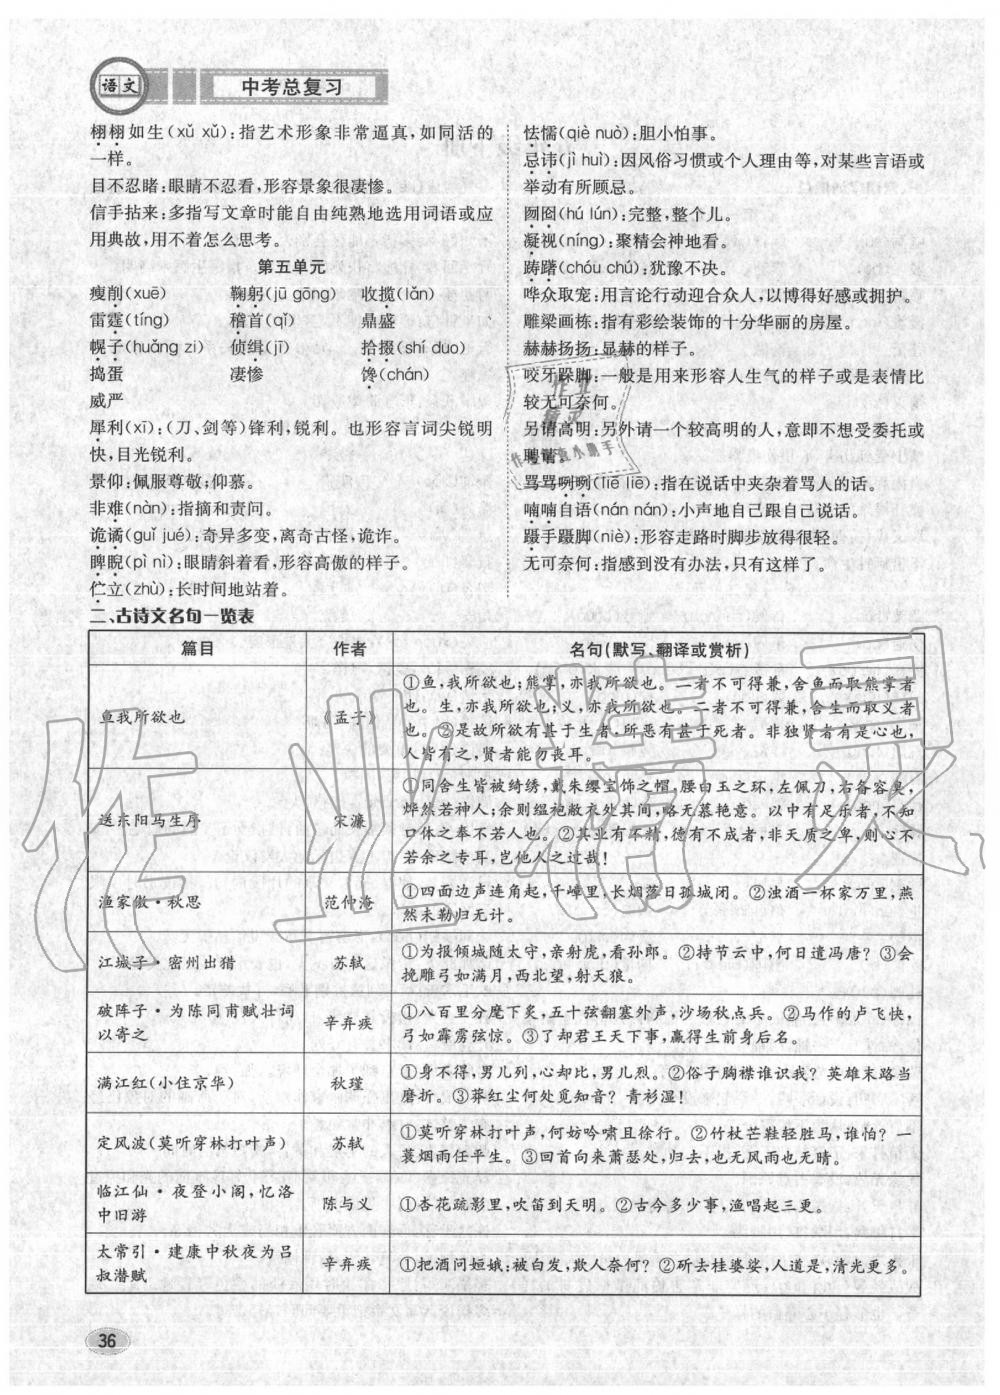 语文 中考总复习
栩栩如生(xǔ xǔ):指艺术形象非常逼真,如同活的
一样。
目不忍睹:眼睛不忍看,形容景象很凄惨。
信手拈来:多指写文章时能自由纯熟地选用词语或应
用典故,用不着怎么思考。
第五单元
瘦削(xuē) 鞠躬(jū gōng) 收揽(lǎn)
雷霆(tíng) 稽首(qǐ) 鼎盛
幌子(huǎng zi) 侦缉(jī) 拾掇(shí duo)
捣蛋 凄惨 馋(chán)
威严
犀利(xī):(刀、剑等)锋利,锐利。也形容言词尖锐明
快,目光锐利。
景仰:佩服尊敬;仰慕。
非难(nàn):指摘和责问。
诡谲(guǐ jué):奇异多变,离奇古怪,诡诈。
睥睨(pì nì):眼睛斜着看,形容高傲的样子。
伫立(zhù):长时间地站着。
怯懦(qiè nuò):胆小怕事。
忌讳(jì huì):因风俗习惯或个人理由等,对某些言语或
举动有所顾忌。
囫囵(hú lún):完整,整个儿。
凝视(níng):聚精会神地看。
踌躇(chóu chú):犹豫不决。
哗众取宠:用言论行动迎合众人,以博得好感或拥护。
雕梁画栋:指有彩绘装饰的十分华丽的房屋。
赫赫扬扬:显赫的样子。
咬牙跺脚:一般是用来形容人生气的样子或是表情比
较无可奈何。
另请高明:另外请一个较高明的人,意即不想受委托或
聘请。
骂骂咧咧(liē liē):指在说话中夹杂着骂人的话。
喃喃自语(nán nán):小声地自己跟自己说话。
蹑手蹑脚(niè):形容走路时脚步放得很轻。
无可奈何:指感到没有办法,只有这样了。
二、古诗文名句一览表
篇目 作者 名句(默写、翻译或赏析)
鱼我所欲也 《孟子》 ①鱼,我所欲也;熊掌,亦我所欲也。二者不可得兼,舍鱼而取熊掌者
也。生,亦我所欲也;义,亦我所欲也。二者不可得兼,舍生而取义者
也。②是故所欲有甚于生者,所恶有甚于死者。非独贤者有是心也,
人皆有之,贤者能勿丧耳。
送东阳马生序 宋濂 ①同舍生皆被绮绣,戴朱缨宝饰之帽,腰白玉之环,左佩刀,右备容臭,
烨然若神人;余则缊袍敝衣处其间,略无慕艳意。以中有足乐者,不知
口体之奉不若人也。②其业有不精,德有不成者,非天质之卑,则心不
若余之专耳,岂他人之过哉!
渔家傲·秋思 范仲淹 ①四面边声连角起,千嶂里,长烟落日孤城闭。②浊酒一杯家万里,燕
然未勒归无计。
江城子·密州出猎 苏轼 ①为报倾城随太守,亲射虎,看孙郎。②持节云中,何日遣冯唐?③会
挽雕弓如满月,西北望,射天狼。
破阵子·为陈同甫赋壮词
以寄之 辛弃疾 ①八百里分麾下炙,五十弦翻塞外声,沙场秋点兵。②马作的卢飞快,
弓如霹雳弦惊。③了却君王天下事,赢得生前身后名。
满江红(小住京华) 秋瑾 ①身不得,男儿列,心却比,男儿烈。②俗子胸襟谁识我?英雄末路当
磨折。③莽红尘何处觅知音?青衫湿!
定风波(莫听穿林打叶声) 苏轼 ①莫听穿林打叶声,何妨吟啸且徐行。②竹杖芒鞋轻胜马,谁怕?一
蓑烟雨任平生。③回首向来萧瑟处,归去,也无风雨也无晴。
临江仙·夜登小阁,忆洛
中旧游 陈与义 ①杏花疏影里,吹笛到天明。②古今多少事,渔唱起三更。
太常引·建康中秋夜为吕
叔潜赋 辛弃疾 ①把酒问姮娥:被白发,欺人奈何?②斫去桂婆娑,人道是,清光更多。
36
作业精灵